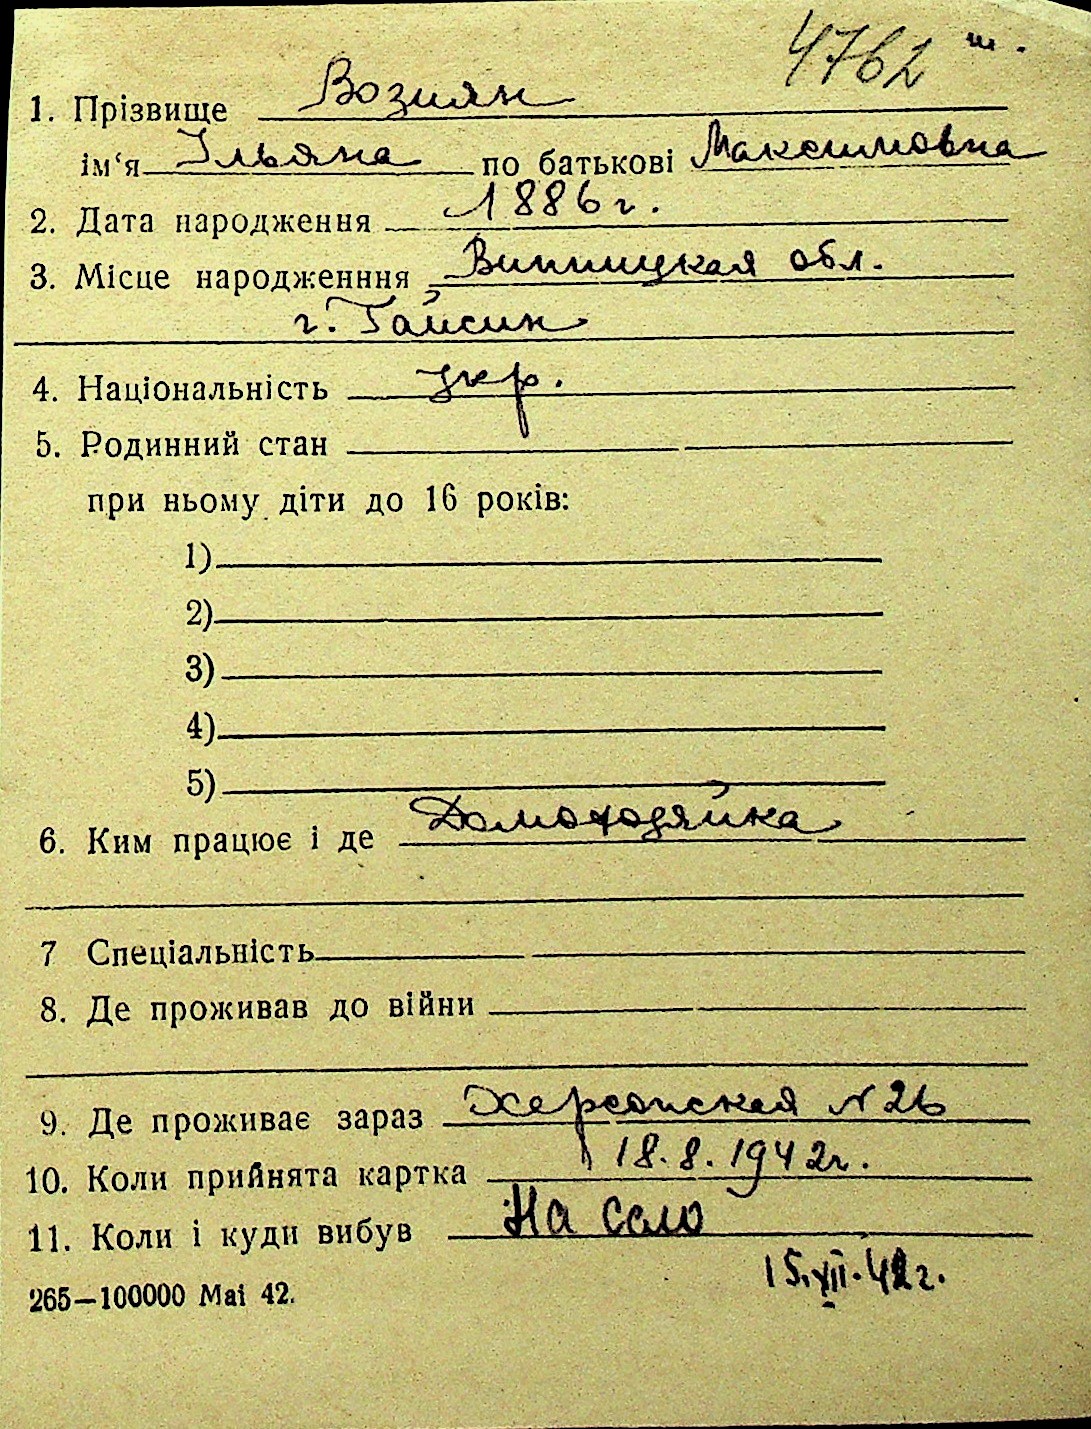 4762 ш.
1. Прізвище Возиян
ім‘я Ільяна по батькові Максимовна
2. Дата народження 1886 г.
3. Місце народженння Винницкая обл.
г. Гайсин
4. Національність укр.
5. Родинний стан
при ньому діти до 16 років:
1)
2)
3)
4)
5)
6. Ким працює і де Домохозяйка
7 Спеціальність
8. Де проживав до війни
9. Де проживає зараз Херсонская N 26
10. Коли прийнята картка 18.8.1942г.
11. Коли і куди вибув На село
15.XII.42г.
265—100000 Mai 42.